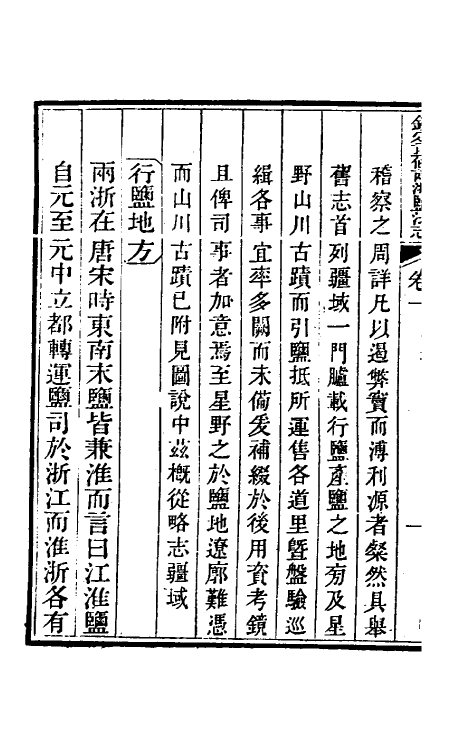 稽察之周詳凡以遏弊竇而溥利源者粲然具舉
舊志首列疆域一門臚載行鹽產鹽之地旁及星
野山川古蹟而引鹽抵所運售各道里曁盤驗巡
緝各事宜率多闕而未備爰補綴於後用資考鏡
且俾司事者加意焉至星野之於鹽地遼廓難憑
而山川古蹟已附見圖說中茲槪從略志疆域
行鹽地方
兩浙在唐宋時東南末鹽皆兼淮而言曰江淮鹽
自元至元中立都轉運鹽司於浙江而淮浙各有